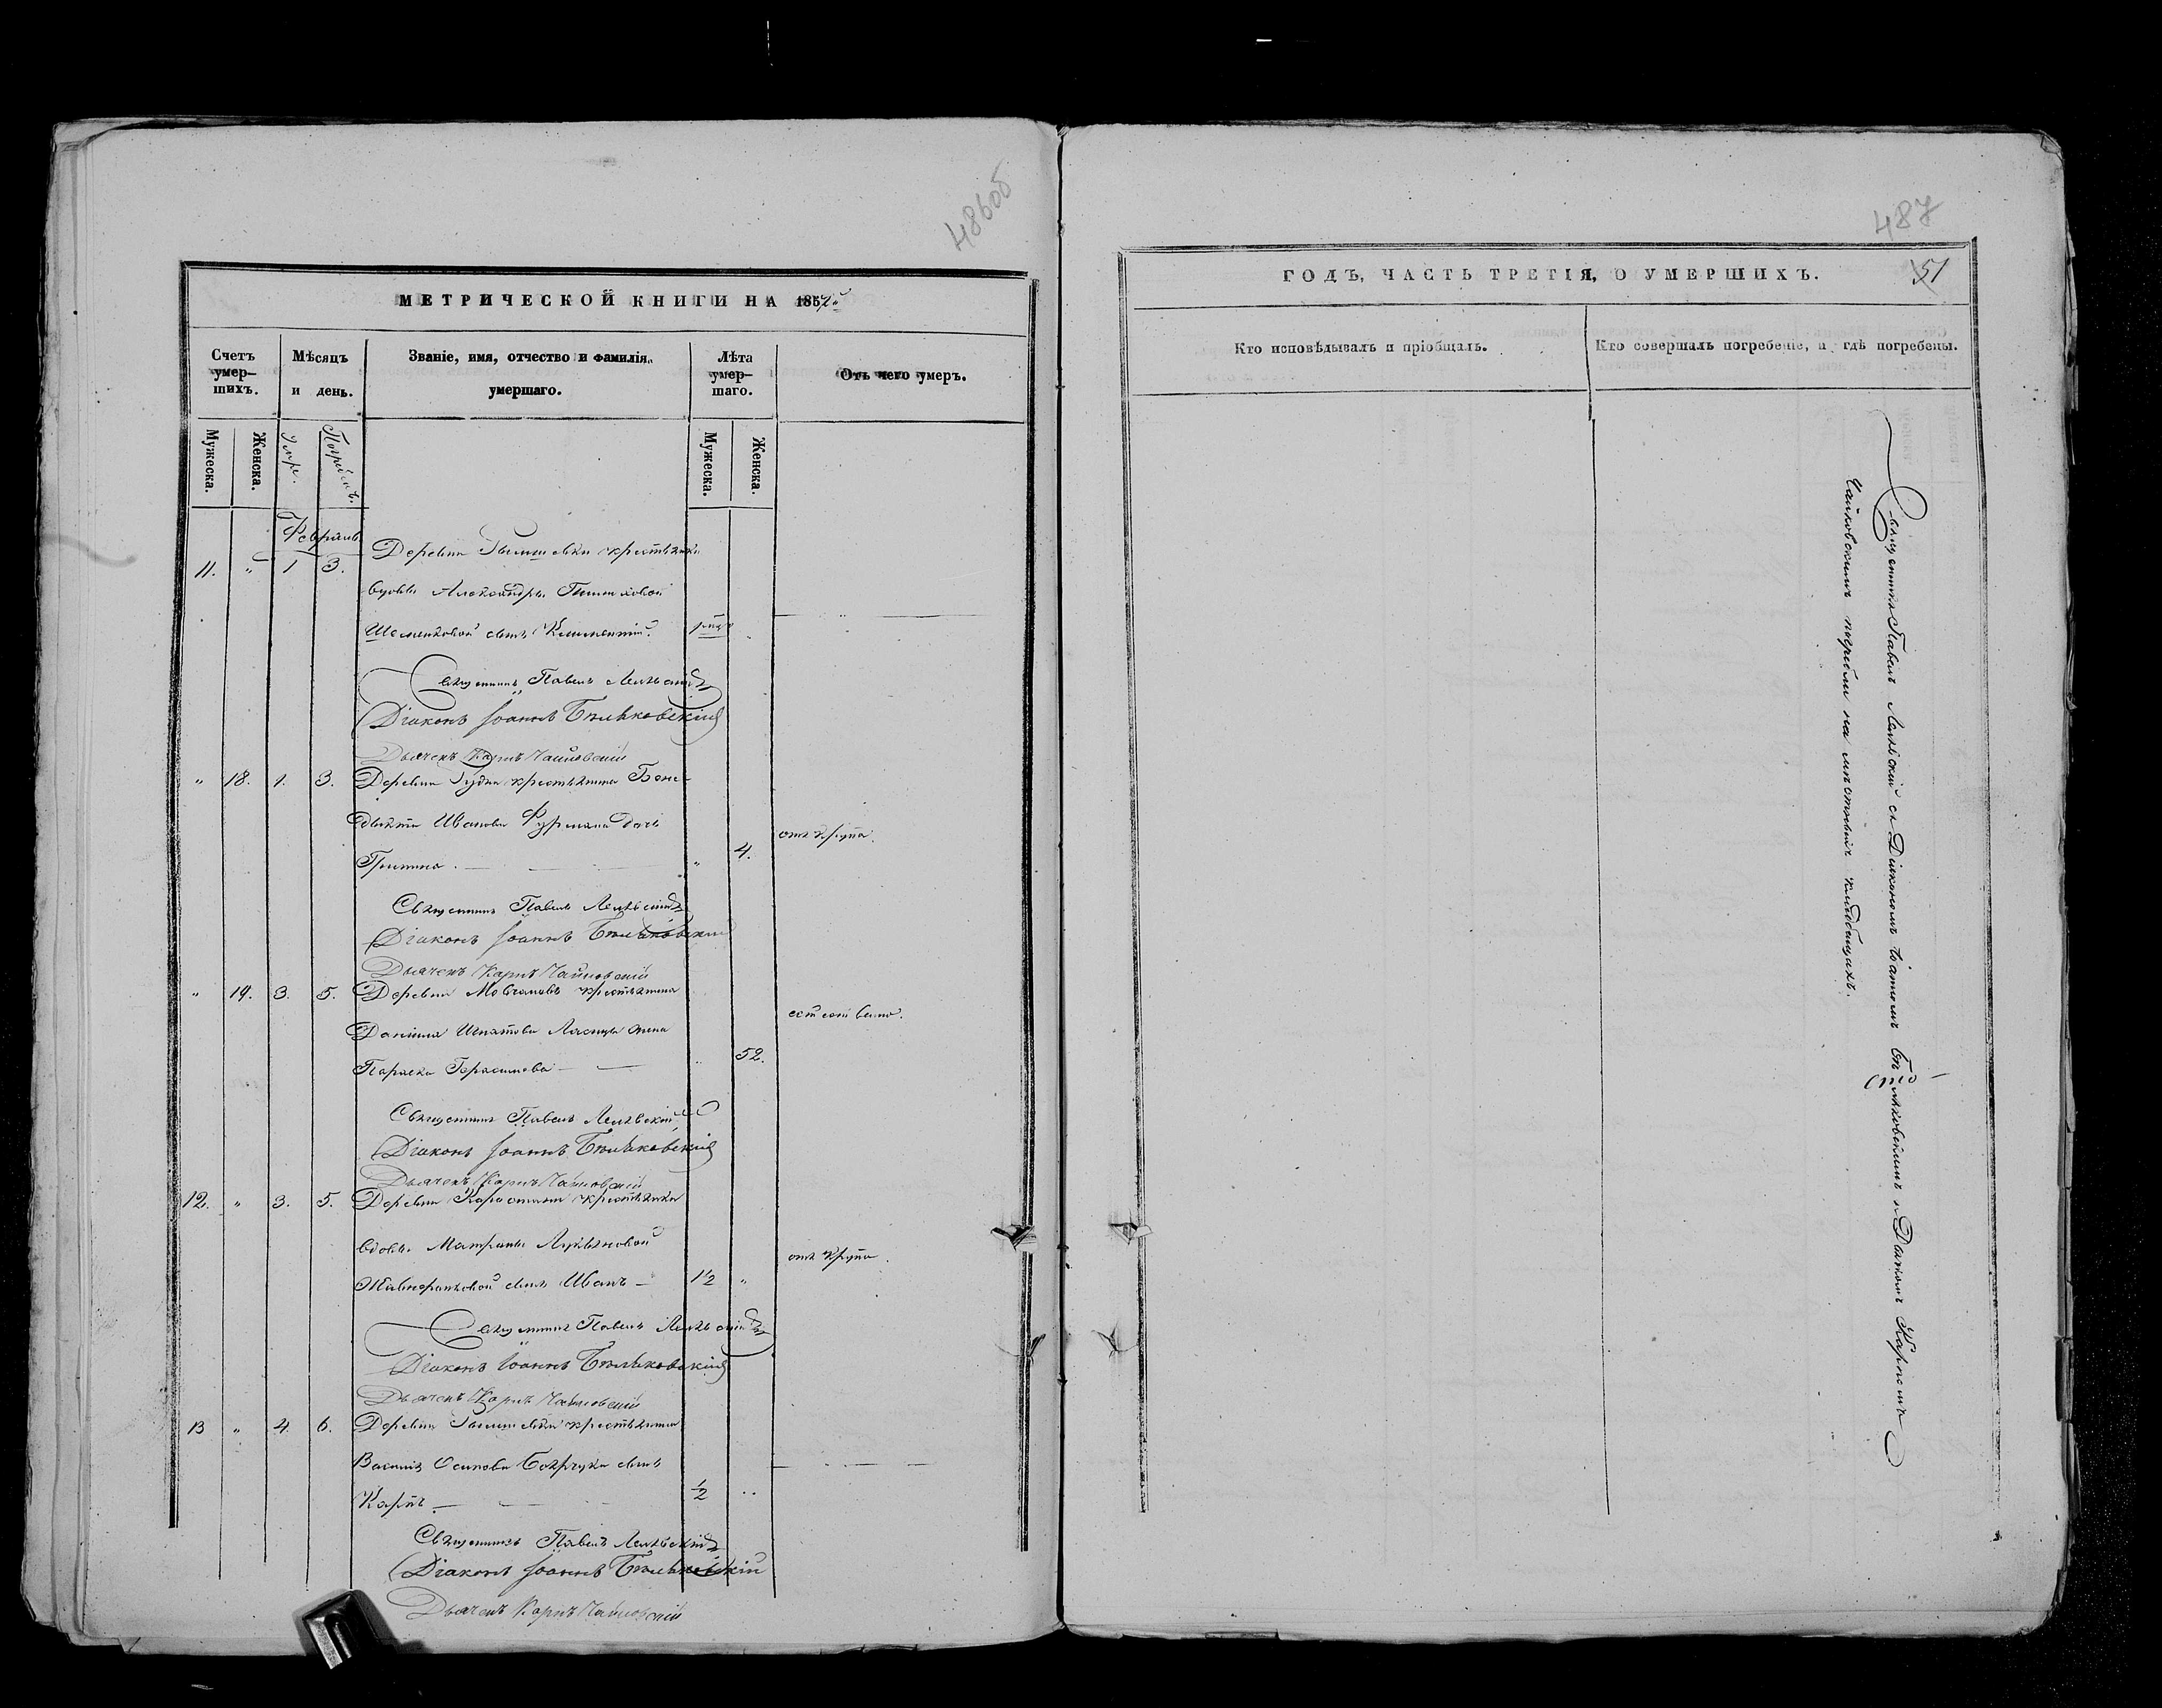 486об
МЕТРИЧЕСКОЙ КНИГИ НА 1857й
Счетъ умер-шихъ.
Мѣсяцъ и день.
Званіе, имя, отчество и фамилія умершаго.
Лѣта умер-шаго.
Отъ чего умеръ.
Мужеска.
Женска.
Умре.
Погребенъ.
Мужеска.
Женска.
Февраль
11. " 1 3. Деревни крестьянки
вдовы Александры
сынъ Климентій.
Священникъ Павелъ
Діаконъ Іоаннъ Бѣльковскій
Дьячекъ Карпъ Чайковскій
" 18. 1. 3. Деревни Рудки крестьянина Бене-
дикта Иванова Фурмана дочь
" 4. отъ крупа.
Священникъ Павелъ
Діаконъ Іоаннъ Бѣльковскій
Дьячекъ Карпъ Чайковскій
" 19. 3. 5. Деревни Мовчановъ крестьянина
Даніила Игнатова жена
Параска Герасимова " 52. естественно.
Священникъ Павелъ
Діаконъ Іоаннъ Бѣльковскій
Дьячекъ Карпъ Чайковскій
12. " 3. 5. Деревни крестьянки
вдовы Матроны Лукьяновой
сынъ Иванъ 1½ " отъ крупа.
Священникъ Павелъ
Діаконъ Іоаннъ Бѣльковскій
Дьячекъ Карпъ Чайковскій
13 " 4. 6. Деревни крестьянина
Василія Осипова Боярчука сынъ
Карпъ ½ "
Священникъ Павелъ
Діаконъ Іоаннъ Бѣльковскій
Дьячекъ Карпъ Чайковскій
487
ГОДЪ, ЧАСТЬ ТРЕТІЯ, О УМЕРШИХЪ.
51
Кто исповѣдывалъ и пріобщалъ.
Кто совершалъ погребеніе, и гдѣ погребены.
Священникъ Павелъ съ Діакономъ Іоанномъ Бѣльковскимъ и Дьячкомъ Карпомъ
Чайковскимъ погребли на мѣстныхъ кладбищахъ.